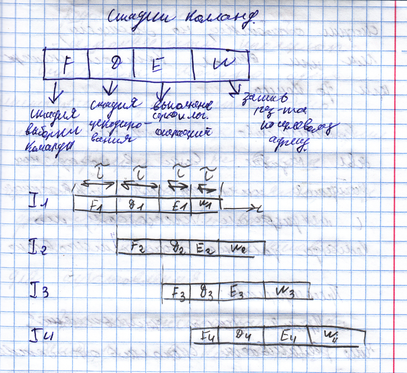 Стадии команд.
F D E W
стадия
выборки
команды
стадия
декодиро-
вания
запись
рез-та
адресу
τ τ τ τ
I1 F1 D1 E1 W1
I2 F2 D2 E2 W2
I3 F3 D3 E3 W3
I4 F4 D4 E4 W4